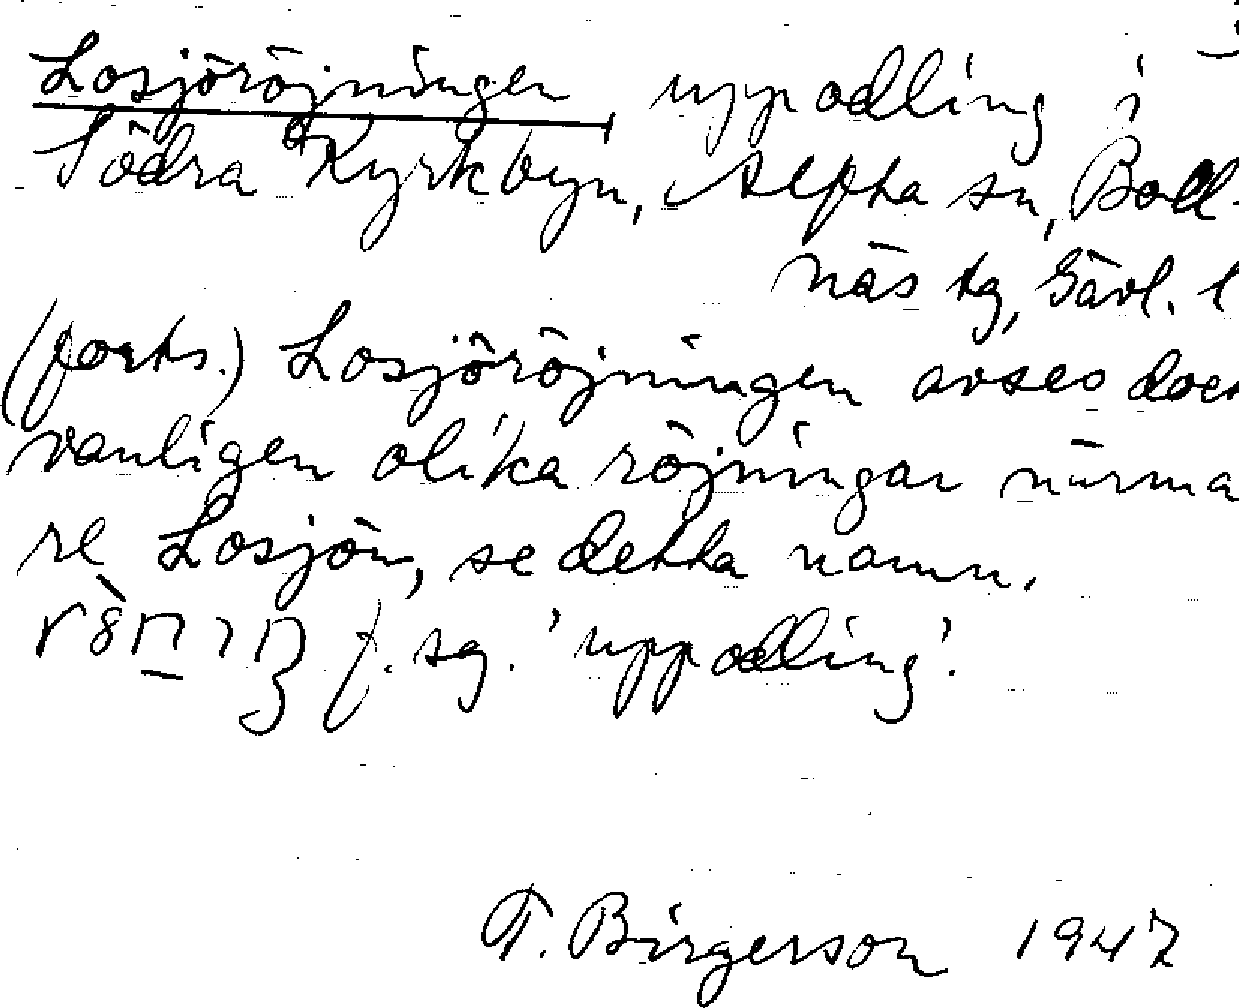 Losjöröjningen, uppodling i
Södra Kyrkbyn, Alfta sn, Boll-
näs tg, Gävl. l
(forts.) Losjöröjningen avses doc
vanligen olika röjningar närma
re Losjön, se detta namn.
f. sg. 'uppodling'.
T. Birgerson 1947